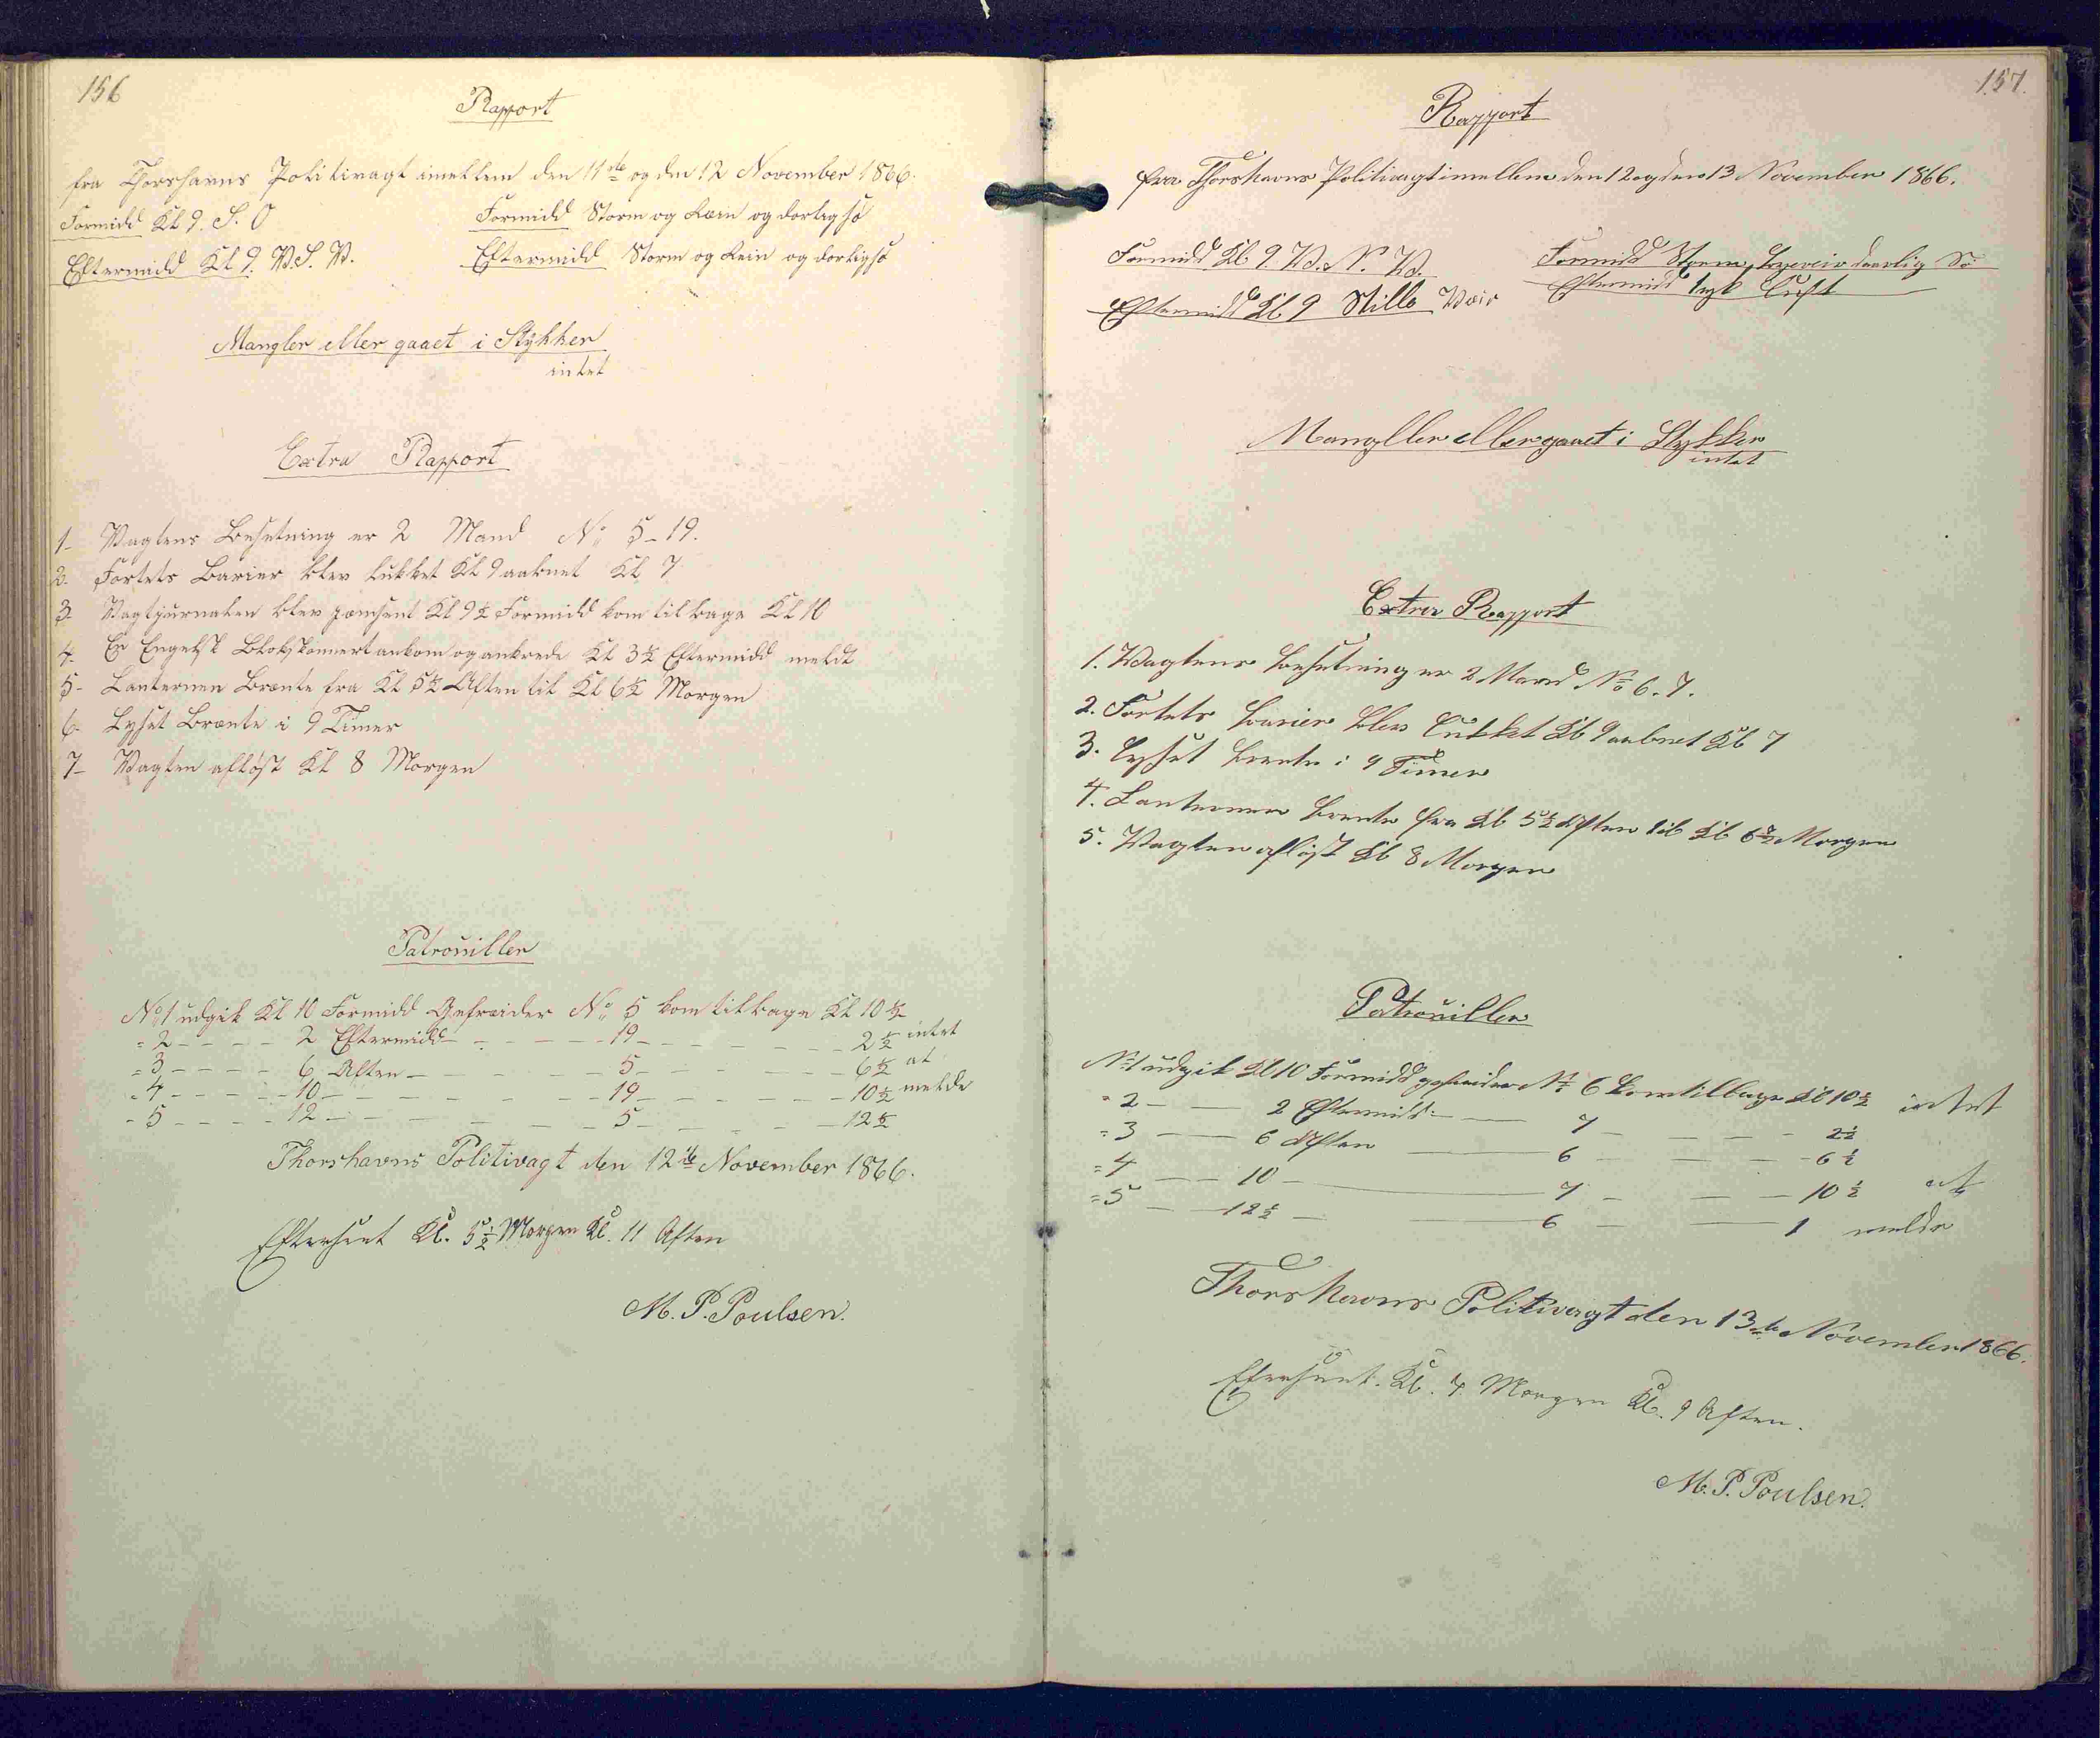 156
Rapport
fra Thorshavns Politivagt imellem den 11te og den 12 November 1866.
Formidd Kl 9. S. O
Formidd Storm og Rein og dorligsö
Eftermidd Kl 9. V.S.V.
Eftermidd Storm og Rein og dorligsö
Mangler eller gaaet i Stykker
intet
Extra Rapport
1- Vagtens Besetning er 2 Mand No 5-19.
2. Fortets Barier blev lukket Kl 9 aabnet Kl 7
3- Vagtjurnalen blev Kl 9½ Formidd kom tilbage Kl 10
4- En Engelsk ankom og ankrede Kl 3½ Eftermidd meldt
5- Lanternen Brænte fra Kl 5½ Aften til Kl 6½ Morgen
6- Lyset Brænte i 9 Timer
7- Vagten aflöst Kl 8 Morgen
Patrouiller
No 1 udgik Kl 10 Formidd Gefreider No 5 kom tilbage Kl 10½
= 2 - - - - 2 Eftermidd - - - - 19 - - - - - 2½ intet
= 3 - - - - 6 Aften - - - - 5 - - - - - 6½ at
= 4 - - - - 10 - - - - - 19 - - - - - 10½ melde
- 5 - - - - 12 - - - - - 5 - - - - - 12½
Thorshavns Politivagt den 12te November 1866.
Efterseet Kl. 5½ Morgen Kl. 11 Aften
M. P. Poulsen.
157.
Rapport
fra Thorshavns Politivagt imellem den 12 og den 13 November 1866.
Formidd Kl 9. V. N. V.
Formidd Storm, daarlig Sö
Eftermidd Kl 9 Stille Veir
Eftermidd tyk Luft
Mangller eller gaaet i Stykker
intet
Extra Rapport
1. Vagtens besetning er 2 Mand No 6. 7.
2. Fortets barier blev lukket Kl 9 aabnet Kl 7
3. Lyset brente i 9 Timer
4. Lanternen brente fra Kl 5½ Aften til Kl 6½ Morgen
5. Vagten aflöst Kl 8 Morgen
Patrouiller
No 1 udgik Kl 10 Formidd gefreider No 6 kom tilbage Kl 10½ intet
= 2 — — 2 Eftermidd — — 7 — — — 2½
= 3 — — 6 Aften — — 6 — — — 6½
= 4 — — 10 — — 7 — — — 10½ at
= 5 — — 12½ — — 6 — — — 1 melde
Thorshavns Politivagt den 13de November 1866.
Efterseet. Kl. 4 Morgen Kl. 9 Aften.
M. P. Poulsen.